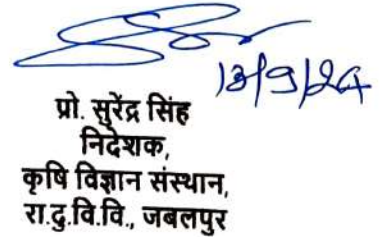 13/9/24
प्रो. सुरेंद्र सिंह
निदेशक,
कृषि विज्ञान संस्थान,
रा.दु.वि.वि., जबलपुर